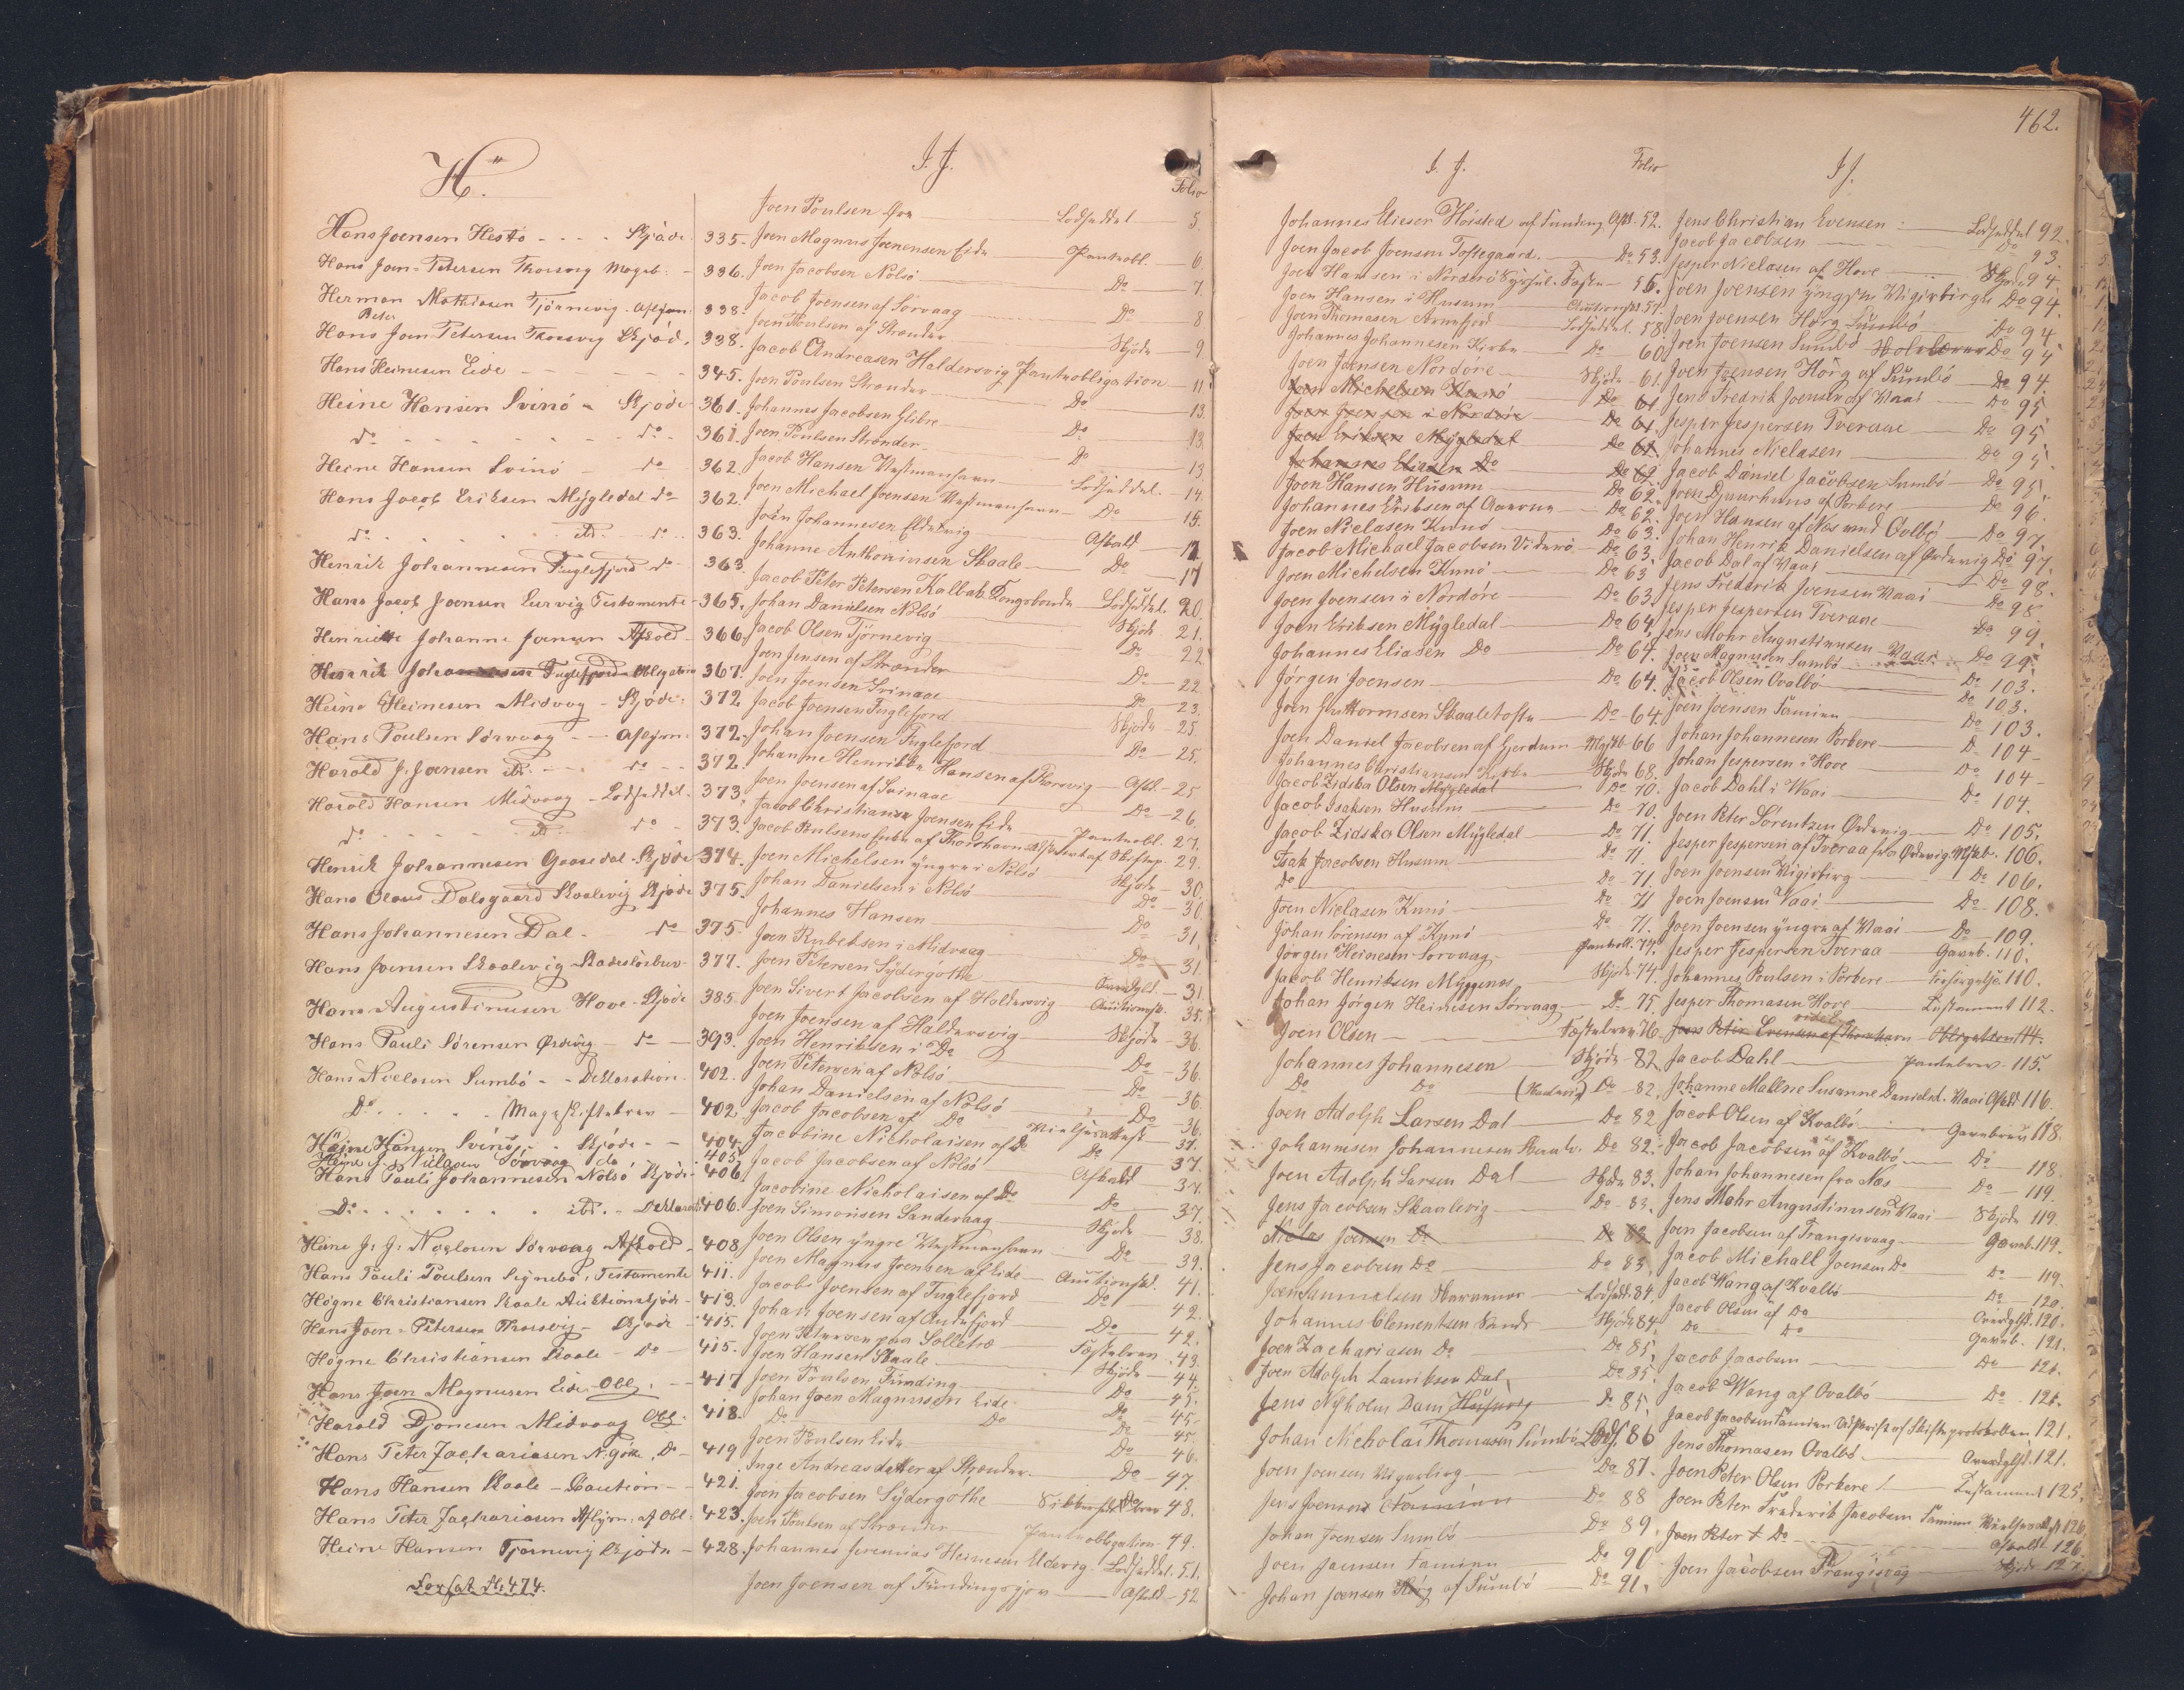 H.
Hans Joensen Hestø - Skjöde 335.
Hans Joen-Petersen Thorsvig Mageb: - 336.
Herman Mathiasen Tjørnevig - 338.
Peter
Hans Joen Petersen Thorsvig Skjöd. 338.
Hans Heinesen Eide - 345.
Heine Hansen Svinö - Skjöde 361.
do - do - 361.
Heine Hansen Svinö - do 362.
Hans Jacob Eriksen Myglédal do 362.
do - ib. - do 363.
Henrik Johannesen Fuglefjord do 363
Hans Jacob Joensen Lervig Testamente 365.
Henriette Johanne Joensen Afkald - 366.
Henrik Johannesen Fuglefjord Obligation 367.
Heine Heinesen Midvaag - Skjöde 372
Hans Poulsen Sørvaag - 372.
Harald J. Joensen ib. - do - 372.
Harald Hansen Midvaag - Lodseddel. 373.
do - ib. do - 373.
Henrik Johannesen Gaasedal - Skjöde 374.
Hans Olaus Dalsgaard Skaalevig Skjöde 375.
Hans Johannesen Dal. - do 375
Hans Joensen Skaalevig - Skadeslösbrev 377.
Hans Augustinusen Hove - Skjöde 385.
Hans Pauli Sörensen Ørdevig - do - 393.
Hans Niclasen Sumbö - Deklaration. 402.
Do - Mageskiftebrev - 402.
Heine Hansen Svinö, - Skjöde - 404.
Heine J. Niclasen Sørvaag do 405.
Hans Pauli Johannesen Nolsö Skjöde 406.
Do - ib. - Deklarat. 406.
Heine J. J. Niclasen Sørvaag Afkald - 408.
Hans Pauli Poulsen Sejnebö, Testamente 411.
Högne Christiansen Skaale Auktionskjöde - 413.
Hans Joen-Petersen Thorsvig - Skjöde - 415.
Högne Christiansen Skaale - Do - 415.
Hans Joen Magnusen Eide Obl. - 417
Harald Djonesen Midvaag Obl. 418.
Hans Peter Zachariasen N. Göte, Do - 419
Hans Hansen Skaale - Caution - 421.
Hans Peter Zachariasen Aflysn. af Obl. 423.
Heine Hansen Tjørnevig Skjöde - 428.
Forsat Fo. 474.
I. J.
Folio
Joen Poulsen Øre - Lodseddel - 5.
Joen Magnus Joenensen Eide - Panteobl. - 6.
Joen Jacobsen Nolsö - Do - 7.
Jacob Joensen af Sørvaag - Do - 8
Joen Poulsen af Strænder - Skjöde - 9
Jacob Andreasen Haldersvig Panteobligation - 11.
Joen Poulsen Strænder - Do - 13.
Johannes Jacobsen Glibre - Do - 13.
Joen Poulsen Strænder - Do - 13.
Jacob Hansen Vestmanhavn - Lodseddel. - 14.
Joen Michael Joensen Vestmanhavn - Do - 15.
Joen Johannesen Eldevig - Afkald - 17.
Johanne Anthoniusen Skaale - Do - 17
Jacob Peter Petersen Kalbak Kongsbonde - Lodseddel. 20.
Johan Danielsen Nolsö - Skjöde. 21.
Jacob Olsen Tjørnevig - Do - 22
Joen Jensen af Strænder - Do - 22.
Joen Joensen Svinaae - Do - 23.
Jacob Joensen Fuglefjord - Skjöde - 25
Johan Joensen Fuglefjord - Do - 25.
Johanne Henrikke Hansen af Thorsvig - Afkld. - 25
Joen Joensen af Svinaae - Do - 26
Jacob Christian Joensen Eide - Panteobl. - 27.
Jacob Poulsens Enke af Thorshavn Udskrift af Skiftep. - 29.
Joen Michelsen yngre i Nolsö - Skjöde - 30.
Johan Danielsen i Nolsö - Do - 30.
Johannes Hansen - Do - 31.
Joen Rubeksen i Midvaag - Do - 31.
Joen Petersen Sydergöthe - Overdgld. - 31.
Joen Sivert Jacobsen af Haldersvig - Auctionssk. 35.
Joen Joensen af Haldersvig - Skjöde - 36.
Joen Henriksen i Do - Do - 36.
Joen Petersen af Nolsö - Do - 36.
Johan Danielsen af Nolsö - Do - 36.
Jacob Jacobsen af Do - Vielsesattest - 37.
Jacobine Nicholaisen af Do - Do - 37.
Jacob Jacobsen af Nolsö - Afkald - 37.
Jacobine Nicholaisen af Do - Do - 37.
Joen Simonsen Sandevaag - Skjöde - 38.
Joen Olsen yngre Vestmanhavn - Do - 39.
Joen Magnus Joensen af Eide - Auctionssk. 41.
Jacob Joensen af Fuglefjord - Do - 42.
Johan Joensen af Andefjord - Do - 42.
Joen Petersen paa Selletræ - Fæstebrev - 43.
Joen Hansen Skaale - Skjöde - 44.
Joen Poulsen Funding - Do - 45.
Johan Joen Magnussen Eide - Do - 45.
Do Do - Do - 45.
Joen Poulsen Eide - Do - 46.
Inge Andreasdatter af Strænder. - Do - 47.
Joen Jacobsen Sydergothe - Sikkerhedsbrev 48.
Joen Poulsen af Strænder - Panteobligation. 49.
Johannes Jeremias Heinesen Eldevig. - Lodseddel. 51.
Joen Joensen af Fundingsgjov - Afkald - 52
462.
I. J.
Folio
Johannes Elieser Høisted af Funding, Afkl. 52.
Joen Jacob Joensen Toftegaard. - Do 53.
Joen Hansen i Norderö - Fæste - 56.
Joen Hansen i Husum - Auctionssk. 57.
Joen Thomasen Arnefjord - Lodseddel. 58.
Johannes Johannesen Kirke - Do 60.
Joen Joensen Nordöre - Skjöde - 61.
Joen Michelsen Kunö - Do 61
Joen Joensen i Nordöre - Do 61.
Joen Eriksen Mygledal - Do 61.
Johannes Eliasen Do - Do 62.
Joen Hansen Husum - Do 62.
Johannes Eriksen af - Do 62.
Joen Niclasen Kunö - Do 63.
Jacob Michael Jacobsen Viderö - Do 63.
Joen Michelsen Kunö - Do 63
Joen Joensen i Nordöre - Do 63.
Joen Eriksen Mygledal - Do 64.
Johannes Eliasen Do - Do 64.
Jørgen Joensen - Do 64.
Joen Guttormsen Skaaletofte - Do 64.
Joen Daniel Jacobsen af Gjerdum - Mgskb. 66
Johannes Christiansen Kirke - Skjöde 68.
Jacob Zidska Olsen Mygledal - Do 70.
Jacob Isaksen Husum - Do 70.
Jacob Zidska Olsen Mygledal - Do 71.
Isak Jacobsen Husum - Do 71.
Do - Do 71.
Joen Niclasen Kunö - Do 71
Johan Sörensen af Kunö - Do 71.
Jørgen Heinesen Sorvaag - Panteobl. 74.
Jacob Henriksen Myggenæs - Skjöde 74.
Johan Jørgen Heinesen Sorvaag - Do 75.
Joen Olsen - Fæstebrev 76.
Johannes Johannesen - Skjöde - 82
Do Do - Do - 82.
Joen Adolph Larsen Dal - Do 82
Johannsen Johannesen - Do 82.
Joen Adolph Larsen Dal - Skjöde 83.
Jens Jacobsen Skaalevig - Do - 83.
Niclas Joensen Do - Do 83
Jens Jacobsen Do - Do 83.
Joen Samuelsen Skarvenæs - Lodsedd. 84.
Johannes Clementsen Sand - Skjöde 84.
Joen Zachariasen Do - Do 85.
Joen Adolph Lauriksen Dal - Do 85.
Jens Nyholm Dam Husevig - Do 85.
Johan Nicholai Thomasen Sumbö Lods. 86
Joen Joensen Vigerbirg - Do 87.
Jens Joensen Famien - Do 88
Johan Joensen Sumbö - Do 89.
Joen Joensen Famien - Do 90
Johan Joensen Hörg af Sumbö - Do 91.
I J.
Jens Christian Evensen - Lodseddel 92.
Jacob Jacobsen - Do 93
Jesper Niclasen af Hove - Skjöde 94.
Joen Joensen yngre Vigirbirge Do 94.
Joen Joensen Hörg Sumbö - Do 94
Joen Joensen Sumbö - Do 94
Joen Joensen Hörg af Sumbö - Do 94.
Jens Fredrik Joensen af Waai - Do 95
Jesper Jespersen Tveraae - Do 95
Johannes Niclasen - Do 95.
Jacob Daniel Jacobsen Sumbö - Do 95.
Joen Djuurhuus af Porkere - Do 96.
Joen Hansen af Næs ved Ovalbö - Do 97
Johan Henrik Danielsen af Ørdevig Do 97.
Jacob Dal af Vaai - Do 98.
Jens Frederik Joensen Vaai - Do 98
Jesper Jespersen Tveraae - Do 99.
Jens Mohr Augustinusen Vaai - Do 99.
Joen Magnusen Sumbö - Do 103.
Jacob Olsen Ovalbö - Do 103.
Joen Joensen Famien - Do 103.
Johan Johannesen Porkere - Do 104
Johan Jespersen i Hove - Do 104
Jacob Dahl i Waai - Do 104.
Joen Peter Sörentzen Ørdevig - Do 105.
Jesper Jespersen af Tveraa fra Ørdevig. Mgskb. 106.
Joen Joensen Vigirbirg - Do 106.
Joen Joensen Vaai - Do 108.
Joen Joensen yngre af Waai - Do 109.
Jesper Jespersen Tveraa - Gaveb. 110.
Johannes Poulsen i Porkere - 110.
Jesper Thomasen Hove - Testament 112.
Joen Peter Evensen af Thorshavn - Obligation 114.
Jacob Dahl - Pantebrev 115.
Johanne Mallene Susanne Danielsd. Waai Afkld. 116.
Jacob Olsen af Kvalbö - Gavebrev 118.
Jacob Jacobsen af Kvalbö - Do 118
Johan Johannesen fra Næs - Do 119.
Jens Mohr Augustinusen Vaai - Skjöde 119.
Joen Jacobsen af Frangisvaag - Gaveb. 119.
Jacob Michall Joensen Do - Do 119.
Jacob Wang af Kvalbö - Do 120.
Jacob Olsen af Do - Overdglst. 120.
Do Do - Gaveb. 121.
Jacob Jacobsen - Do 121.
Jacob Wang af Ovalbö - Do 121.
Jacob Jacobsen Famien Udskrift af Skifteprotokollen 121.
Jens Thomasen Ovalbö - Overdglst. 121.
Joen Peter Olsen Porkere - Testament 125.
Joen Peter Frederik Jacobsen Famien Vielsesattest 126.
Joen Peter F. Do - Afkald 126.
Joen Jacobsen Frangisvag - Skjöde 127.